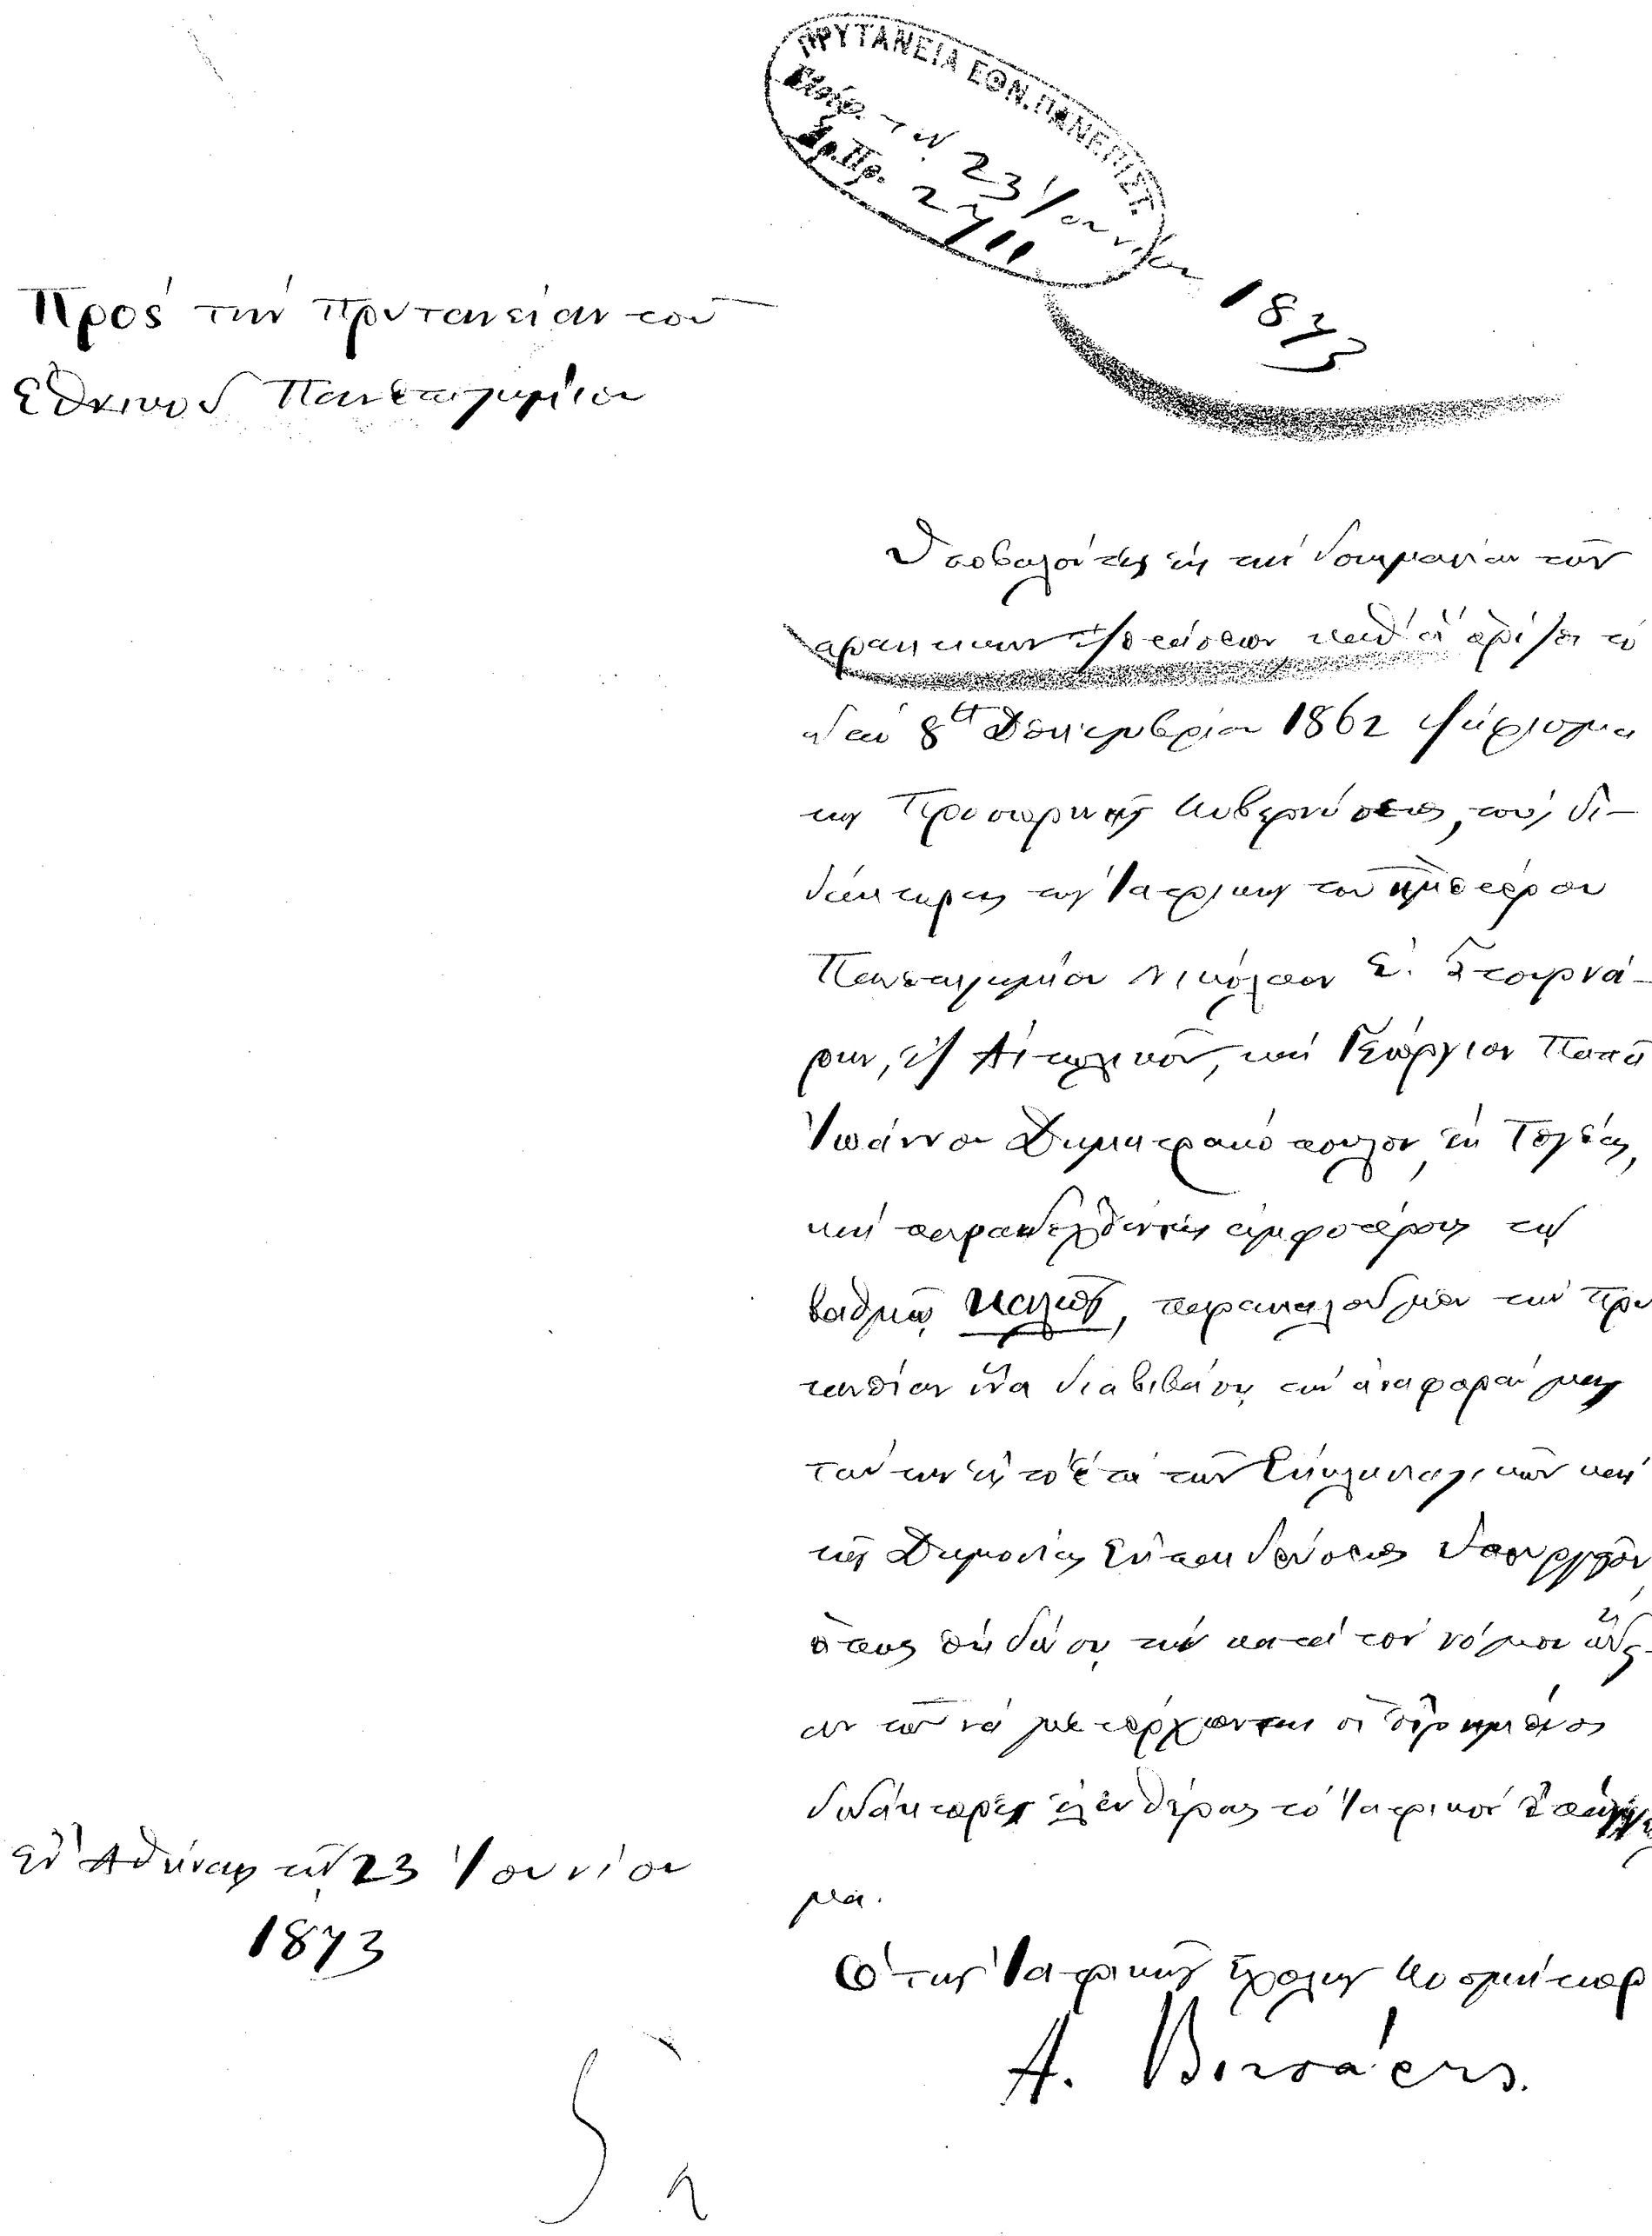 ΠΡΥΤΑΝΕΙΑ ΕΘΝ. ΠΑΝΕΠΙΣΤ.
τῇ 23 Ἰουνίου 1873
Ἀρ. Πρ. 2711
Πρὸς τὴν Πρυτανείαν τοῦ
Ἐθνικοῦ Πανεπιστημίου
Ὑποβαλόντες εἰς τὴν δοκιμασίαν τῶν
πρακτικῶν ἐξετάσεων καθ' ἃ ὁρίζει τὸ
ἀπὸ 8 Δεκεμβρίου 1862 ψήφισμα
τῆς Προσωρινῆς Κυβερνήσεως, τοὺς δι-
δάκτορας τῆς Ἰατρικῆς τοῦ ἡμετέρου
Πανεπιστημίου Νικόλαον Σ. Στουρνά-
ρην, ἐξ Αἰτωλικοῦ, καὶ Γεώργιον Παπᾶ
Ἰωάννου Δημητρακόπουλον ἐκ Τεγέας,
καὶ παραδεχθέντες ἀμφοτέρους τῷ
βαθμῷ καλῶς, παρακαλοῦμεν τὴν Πρυ
τανείαν ἵνα διαβιβάσῃ τὴν ἀναφοράν μας
ταύτην εἰς τὸ ἐπὶ τῶν Ἐκκλησιαστικῶν καὶ
τῆς Δημοσίας Ἐκπαιδεύσεως Ὑπουργεῖον,
ὅπως ἐκδώσῃ τὴν κατὰ τὸν νόμον ἄδει-
αν τοῦ νὰ μετέρχωνται οἱ εἰρημένοι
διδάκτορες ἐλευθέρως τὸ Ἰατρικὸν ἐπάγγελ
μα.
Ἐν Ἀθήναις τῇ 23 Ἰουνίου
1873
Ὁ τῆς Ἰατρικῆς Σχολῆς Κοσμήτωρ
Α.